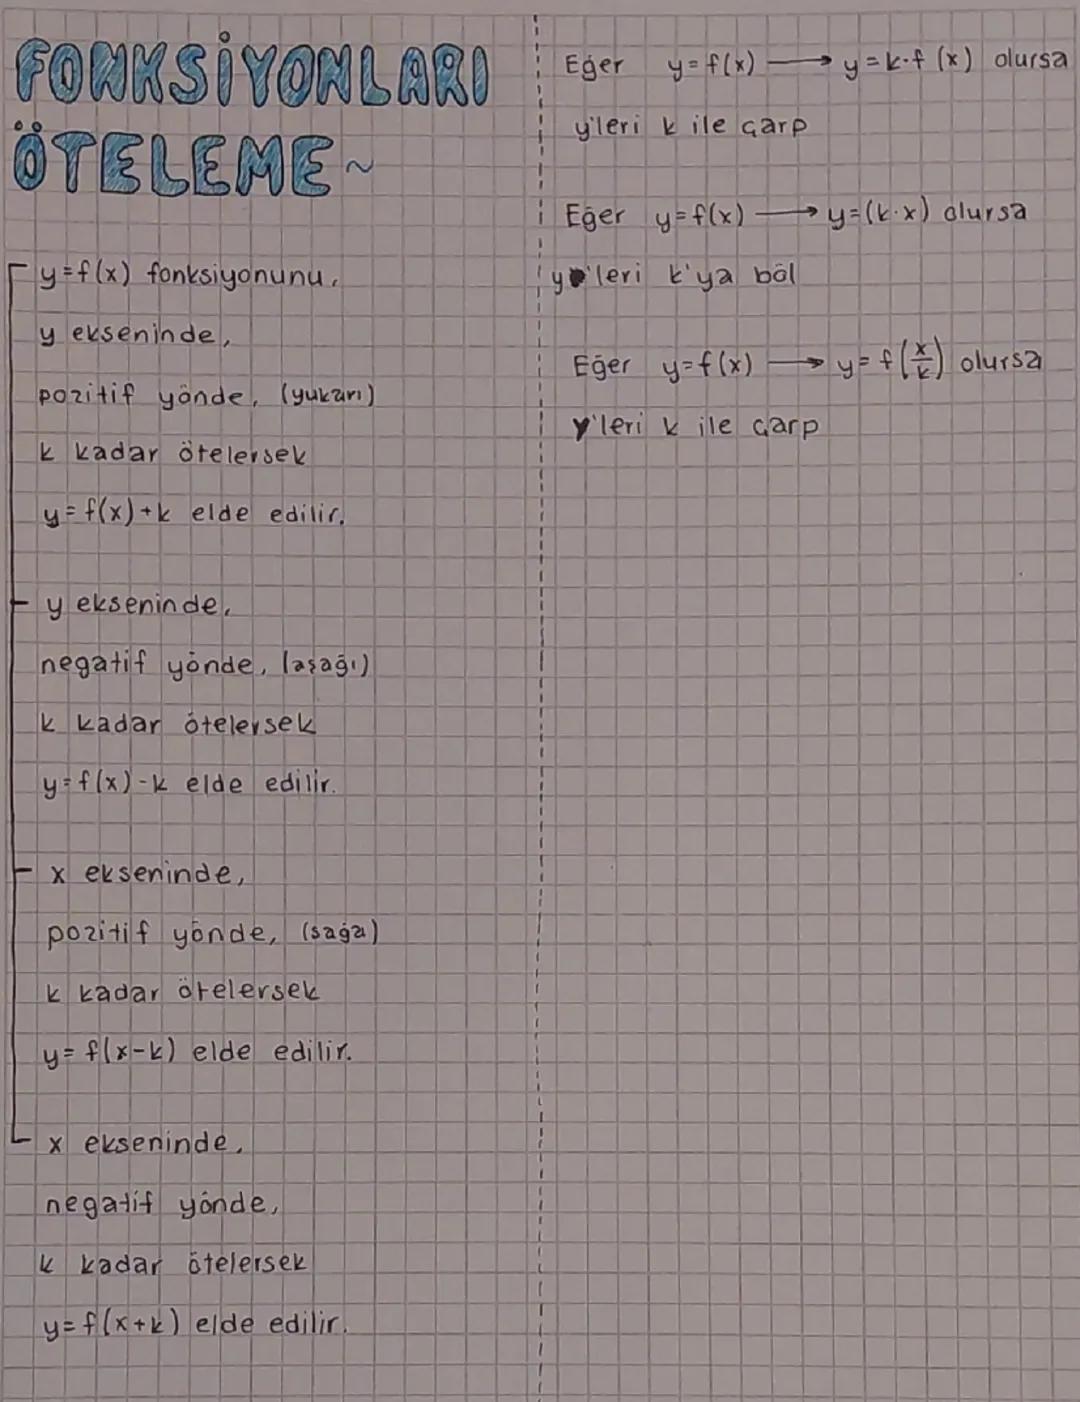 FONKSİYONLARI
ÖTELEME~
y=f(x) fonksiyonunu,
y ekseninde,
pozitif yönde, (yukarı)
k kadar ötelersek
y=f(x)+k elde edilir.
y ekseninde,
negatif yönde, (aşağı)
k kadar ötelersek
y=f(x)-k elde edilir.
x ekseninde,
pozitif yönde, (sağa)
k kadar ötelersek
y=f(x-k) elde edilir.
x ekseninde,
negatif yönde,
k kadar ötelersek
y=f(x+k) elde edilir.
Eğer y=f(x) ⟶ y=k·f(x) olursa
y'leri k ile çarp
Eğer y=f(x) ⟶ y=(k·x) olursa
y'leri k'ya böl
Eğer y=f(x) ⟶ y=f(x/k) olursa
y'leri k ile çarp